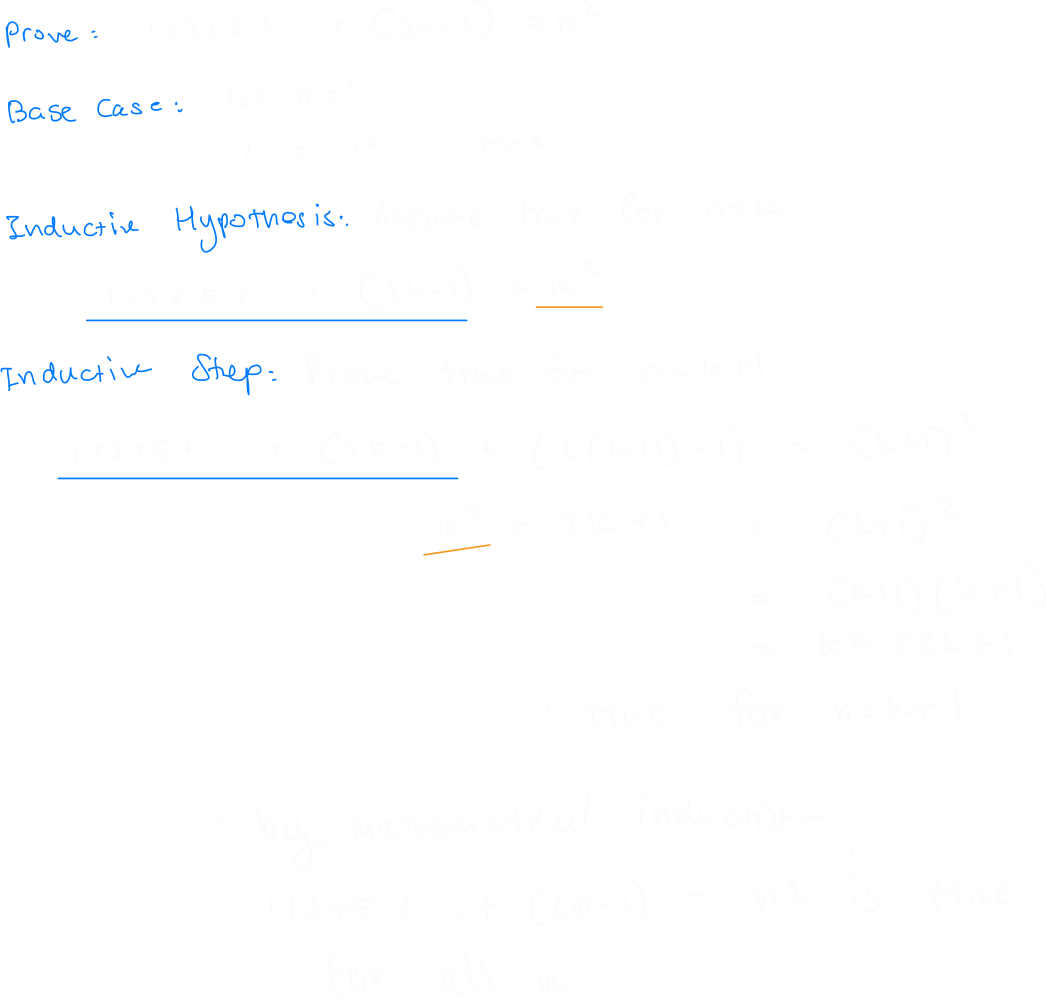 Prove: 1+3+5+ .. + (2n-1) = n²
Base Case: let n=1
1 = 1² ∴ true
Inductive Hypothesis: Assume true for n=k
1+3+5+ .. + (2k-1) = k²
Inductive Step: Prove true for n=k+1
1+3+5+ .. + (2k-1) + (2(k+1)-1) = (k+1)²
k² + 2k+1 = (k+1)²
= (k+1)(k+1)
= k²+2k+1
∴ true for n=k+1
∴ by mathematical induction
1+3+5+ .. + (2n-1) = n² is true
for all n